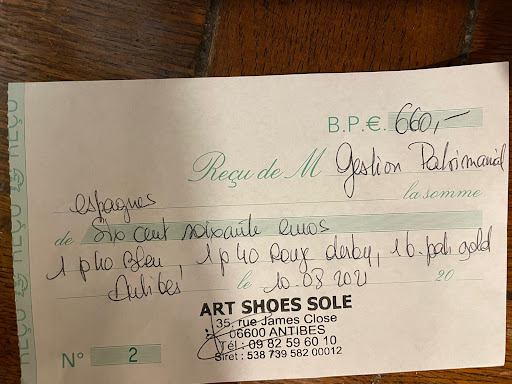 REÇU REÇU
B.P.€. 660,-
Reçu de M Gestion Patrimonial
espagnes la somme
de Six cent soixante euros
1 p 40 Bleu, 1 p 40 Rouge derby, 1 b. gold
Antibes le 10.08 2021 20
ART SHOES SOLE
35, rue James Close
06600 ANTIBES
Tél : 09 82 59 60 10
Siret : 538 739 582 00012
N° 2